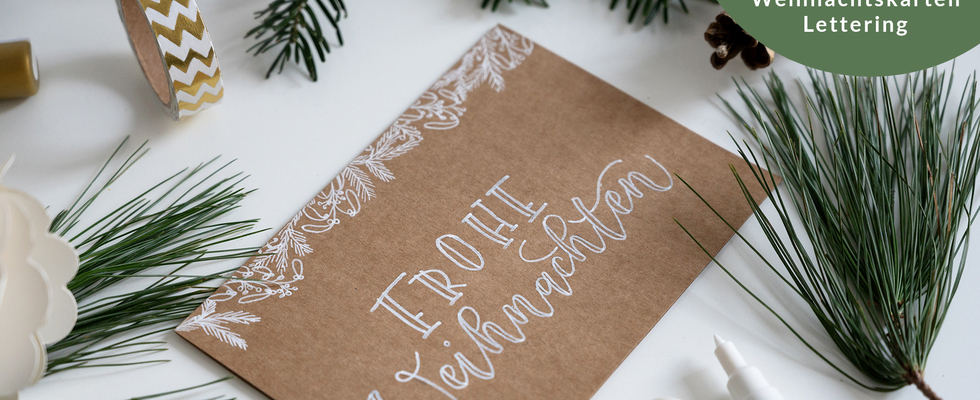 Weihnachtskarten
Lettering
FROHE
Weihnachten